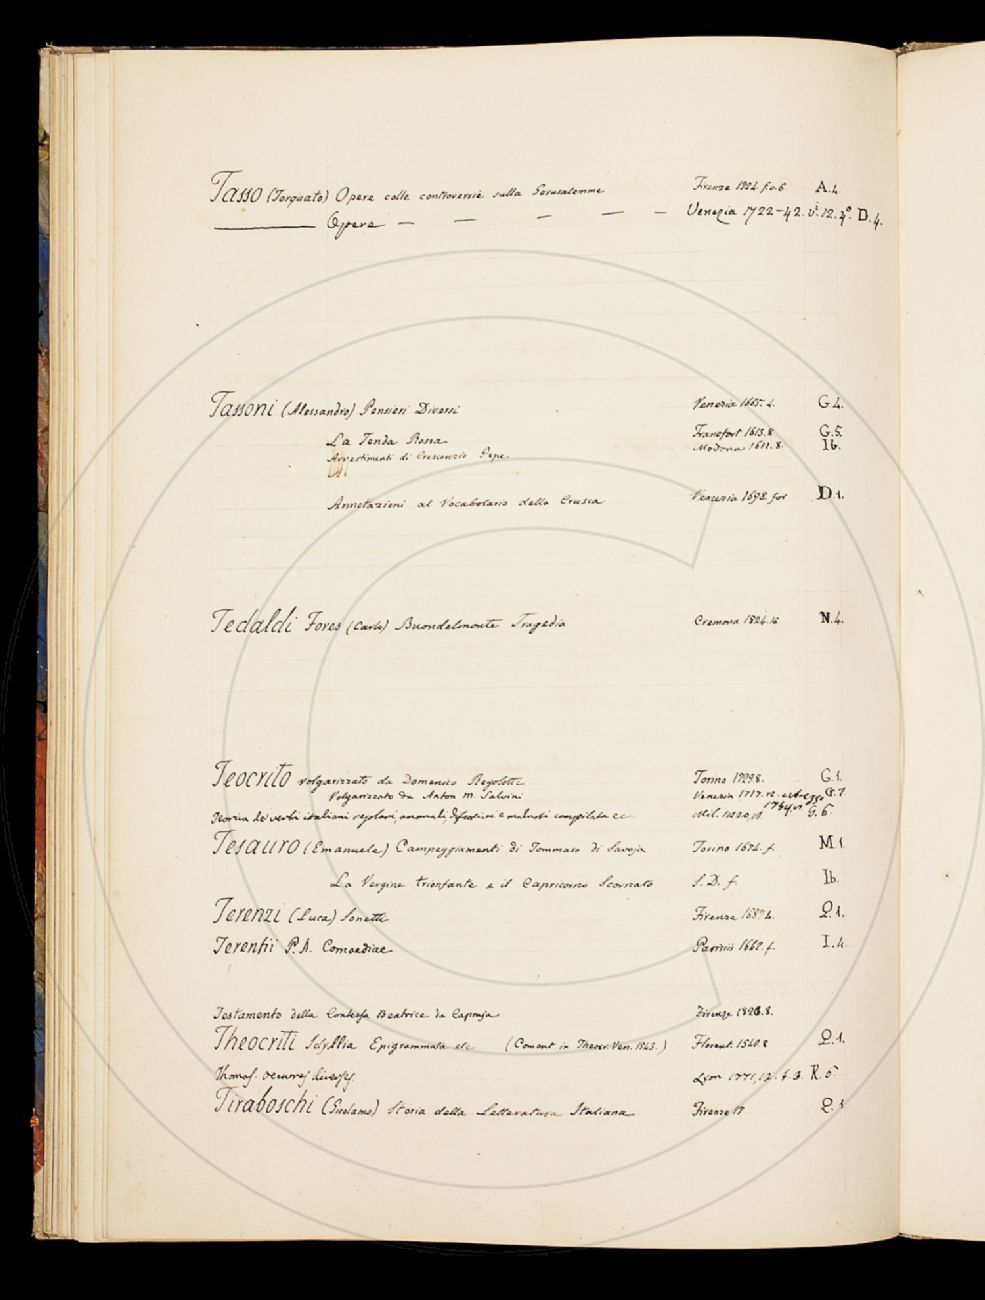 Tasso (Torquato) Opere colle controversie sulla Gerusalemme Firenze 1724. f. v. 6 A. 4.
Opere — — — — — Venezia 1722-42. v. 12. 4°. D. 4.
Tassoni (Alessandro) Pensieri Diversi Venezia 1665. 4. G 4.
La Tenda Rossa Francfort 1613. 8 G. 5.
Avvertimenti di Crescenzio Pepe Modona 1611. 8. Ib.
Annotazioni al Vocabolario della Crusca Venezia 1698. fol D 1.
Tedaldi Fores (Carlo) Buondelmonte Tragedia Cremona 1824. 16 N. 4.
Teocrito volgarizzato da Domenico Regolotti Torino 1729. 8. G. 1.
Volgarizzato da Anton M. Salvini Venezia 1717. 12. G. 7.
Teoria de' verbi italiani regolari, anomali, difettivi e malnoti compilata ec. Mil. 1820, G. 6
Tesauro (Emanuele) Campeggiamenti di Tommaso di Savoja Torino 1674. f. M. 1.
La Vergine trionfante e il Capricorno Scornato S. D. f. Ib.
Terenzi (Luca) Sonetti Firenze 1687 4. Q. 1.
Terentii P. A. Comoediae Parisiis 1642. f. I. 4.
Testamento della Contessa Beatrice da Capraja Firenze 8.
Theocriti Idyllia Epigrammata etc (Coment. in Theocr. Ven. 1543.) Florent. 1540. 8 Q. 1.
Thomas. Oeuvres diverses. Lyon 1771, 12. t. 3. R. 5
Tiraboschi (Girolamo) Storia della Letteratura Italiana Firenze 17 Q. 1